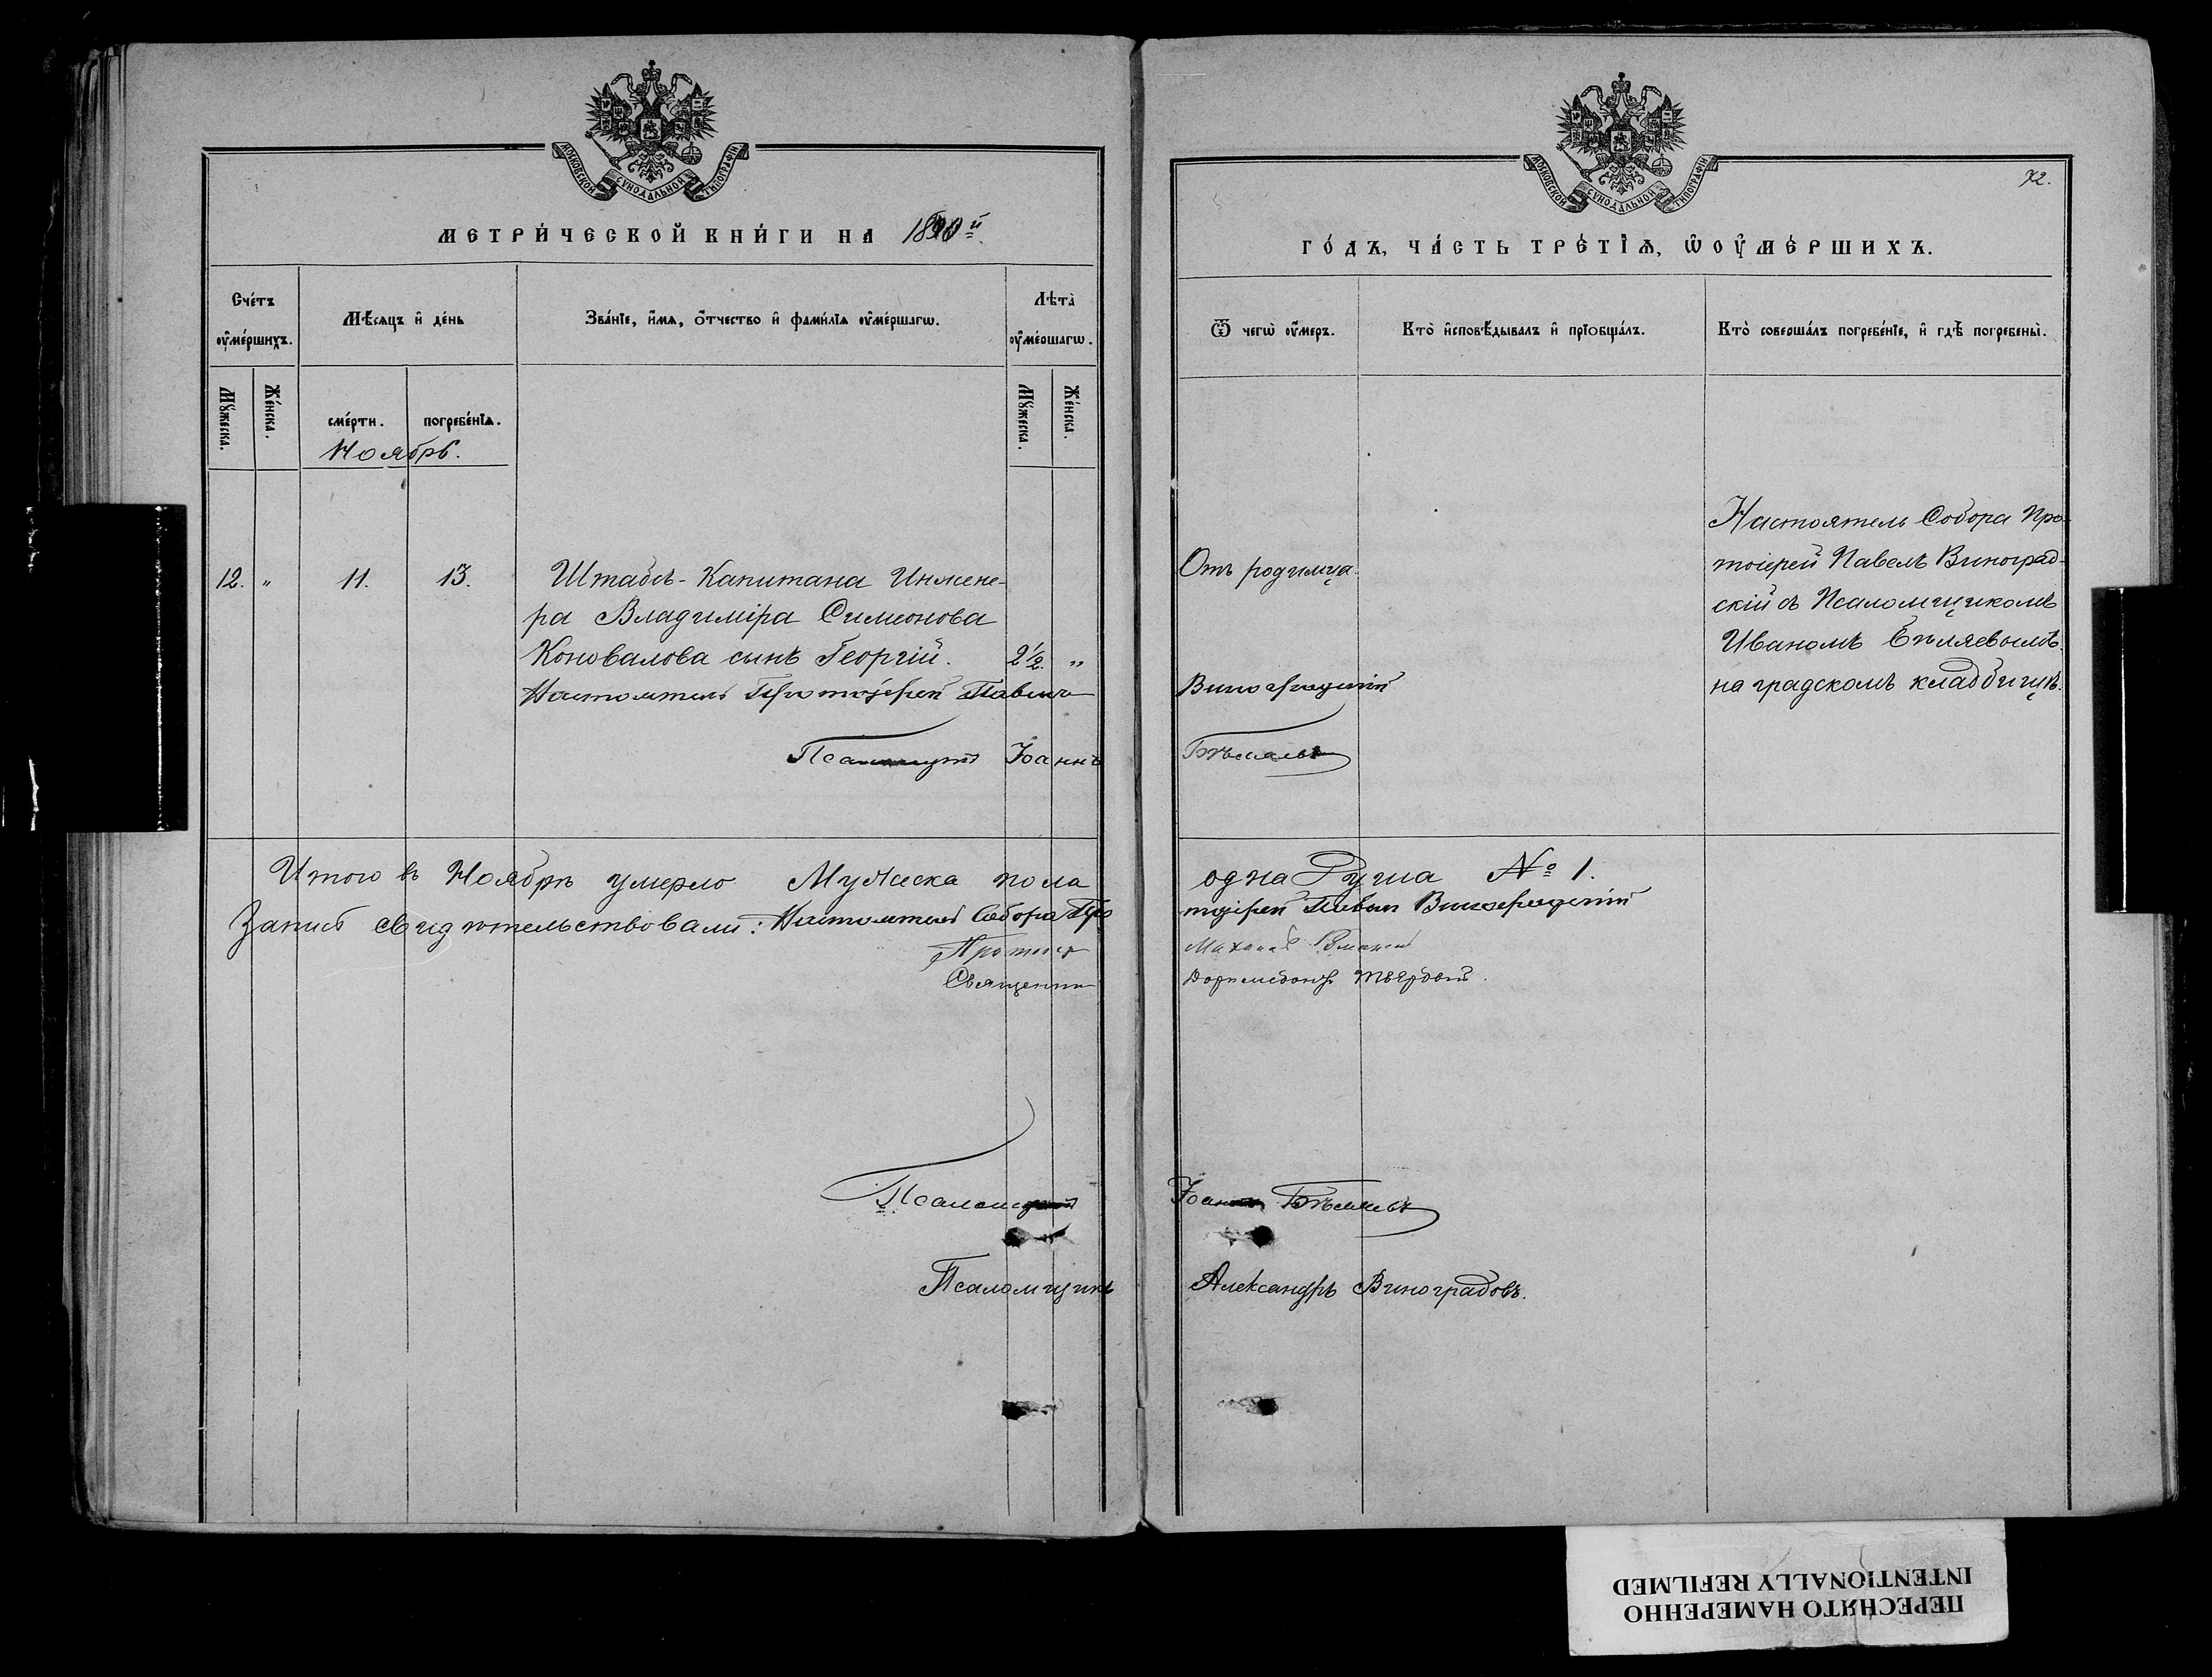 МОСКОВСКОЙ СѴНОДАЛЬНОЙ ТИПОГРАФІИ
МЕТРИ́ЧЕСКОЙ КНИ́ГИ НА 1890й
Сче́тъ ᲂу҆ме́ршихъ.
Мѣ́сяцъ и҆ де́нь
Зва́нїе, и҆́мѧ, ѻ҆́тчество и҆ фами́лїѧ ᲂу҆ме́ршагѡ.
Лѣта̀ ᲂу҆ме́ршагѡ.
Мꙋ́жеска.
Же́нска.
сме́рти.
погребе́нїѧ.
Мꙋ́жеска.
Же́нска.
Ноябрь.
12. " 11. 13.
Штабсъ-Капитана Инжене-
ра Владиміра Симеонова
Коновалова сынъ Георгій. 2½. "
Настоятель Протоіерей Павелъ
Псаломщикъ Іоаннъ
Итого въ Ноябрѣ умерло Мужеска пола
Запись свидѣтельствовали: Настоятель Собора Про
Священни
Псаломщикъ
Псаломщикъ
МОСКОВСКОЙ СѴНОДАЛЬНОЙ ТИПОГРАФІИ
72.
ГО́ДЪ, ЧА́СТЬ ТРЕ́ТЇѦ, Ѡ ОУ҆МЕ́РШИХЪ.
Ѿ чегѡ̀ ᲂу҆́меръ.
Кто̀ и҆сповѣ́дывалъ и҆ прїѡбща́лъ.
Кто̀ соверша́лъ погребе́нїе, и҆ гдѣ̀ погребены̀.
Отъ родимца.
Настоятель Собора Про-
тоіерей Павелъ Виноград-
скій съ Псаломщикомъ
Иваномъ Бѣляевымъ
на градскомъ кладбищѣ.
Виноградскій
Бѣляевъ
одна Душа № 1.
тоіерей Павелъ Виноградскій
Іоаннъ Бѣляевъ
Александръ Виноградовъ.
ПЕРЕСНЯТО НАМЕРЕННО
INTENTIONALLY REFILMED